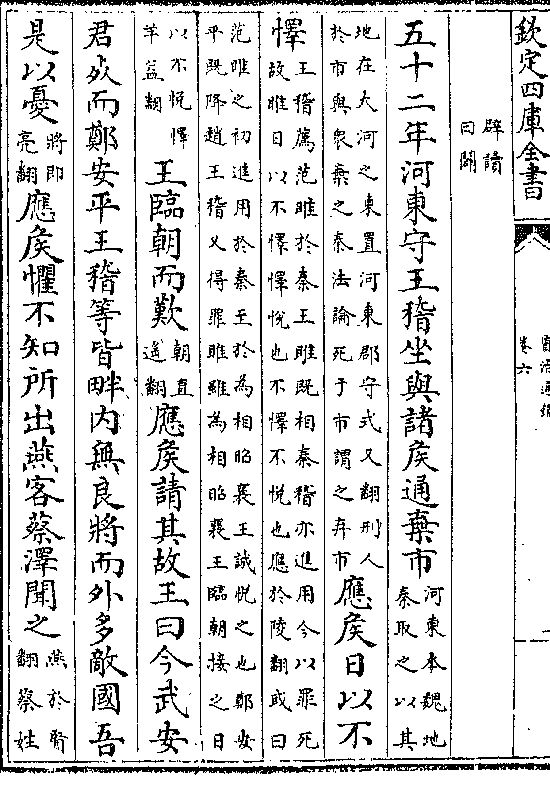 欽定四庫全書
卷六
辟讀曰闢
五十二年河東守王稽坐與諸侯通棄市河東本魏地秦取之以其
地在大河之東置河東郡守式又翻刑人於市與衆棄之秦法論死于市謂之弃市應侯日以不
懌王稽薦范雎於秦王雎既相秦稽亦進用今以罪死故雎日以不懌懌悅也不懌不悅也應於陵翻或曰
范雎之初進用於秦至於為相昭襄王誠悅之也鄭安平既降趙王稽又得罪雎雖為相昭襄王臨朝接之日
以不悅懌羊益翻王臨朝而歎朝直遙翻應侯請其故王曰今武安
君死而鄭安平王稽等皆畔內無良將而外多敵國吾
是以憂將即亮翻應侯懼不知所出燕客蔡澤聞之燕於賢翻蔡姓